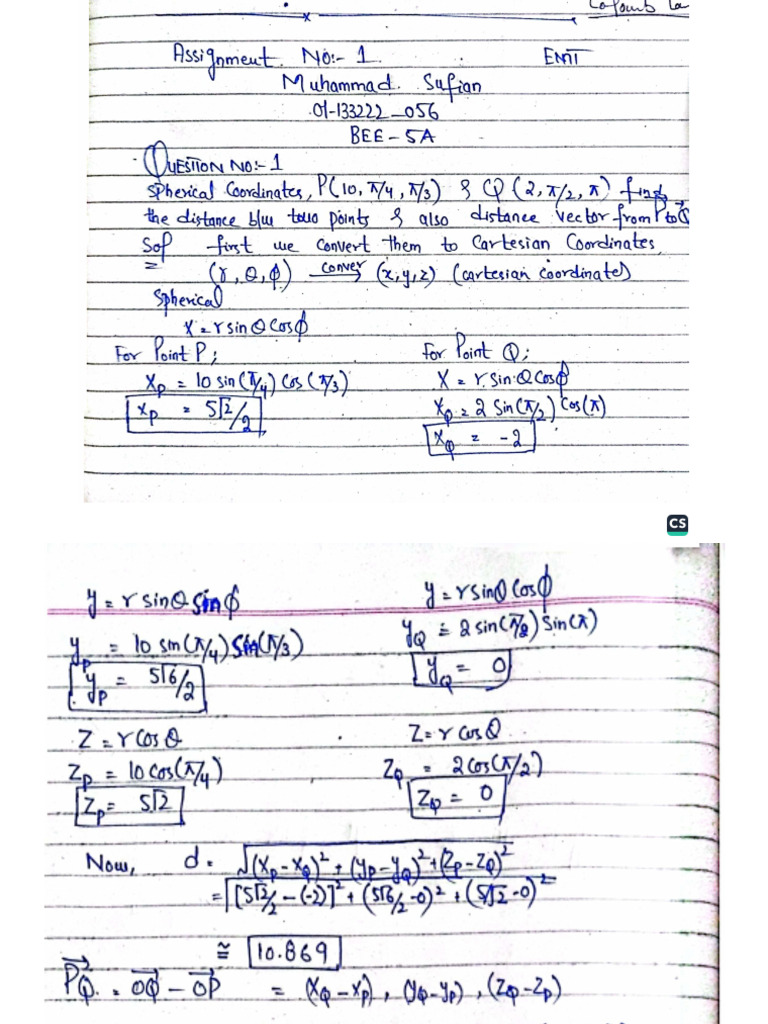 Assignment No:- 1 EMT
Muhammad Sufian
01-133222-056
BEE-5A
QUESTION NO:-1
Spherical Coordinates, P(10, π/4, π/3) & Q(2, π/2, π) find
the distance b/w two points & also distance vector from P to Q
Sol first we convert them to Cartesian Coordinates,
(r, θ, ϕ) conver→ (x, y, z) (cartesian coordinate)
Spherical
x = r sin θ cos ϕ
For Point P; For Point Q;
xp = 10 sin(π/4) cos(π/3) x = r sin θ cos ϕ
xp = 5√2/2 xQ = 2 sin(π/2) cos(π)
xQ = -2
CS
y = r sin θ sin ϕ y = r sin θ cos ϕ
yp = 10 sin(π/4) sin(π/3) yQ = 2 sin(π/2) sin(π)
yp = 5√6/2 yQ = 0
z = r cos θ z = r cos θ
zp = 10 cos(π/4) zQ = 2 cos(π/2)
zp = 5√2 zQ = 0
Now, d = √(xp-xQ)² + (yp-yQ)² + (zp-zQ)²
= √[5√2/2 - (-2)]² + (5√6/2 - 0)² + (5√2 - 0)²
≅ 10.869
PQ = OQ - OP = (xQ - xp), (yQ - yp), (zQ - zp)